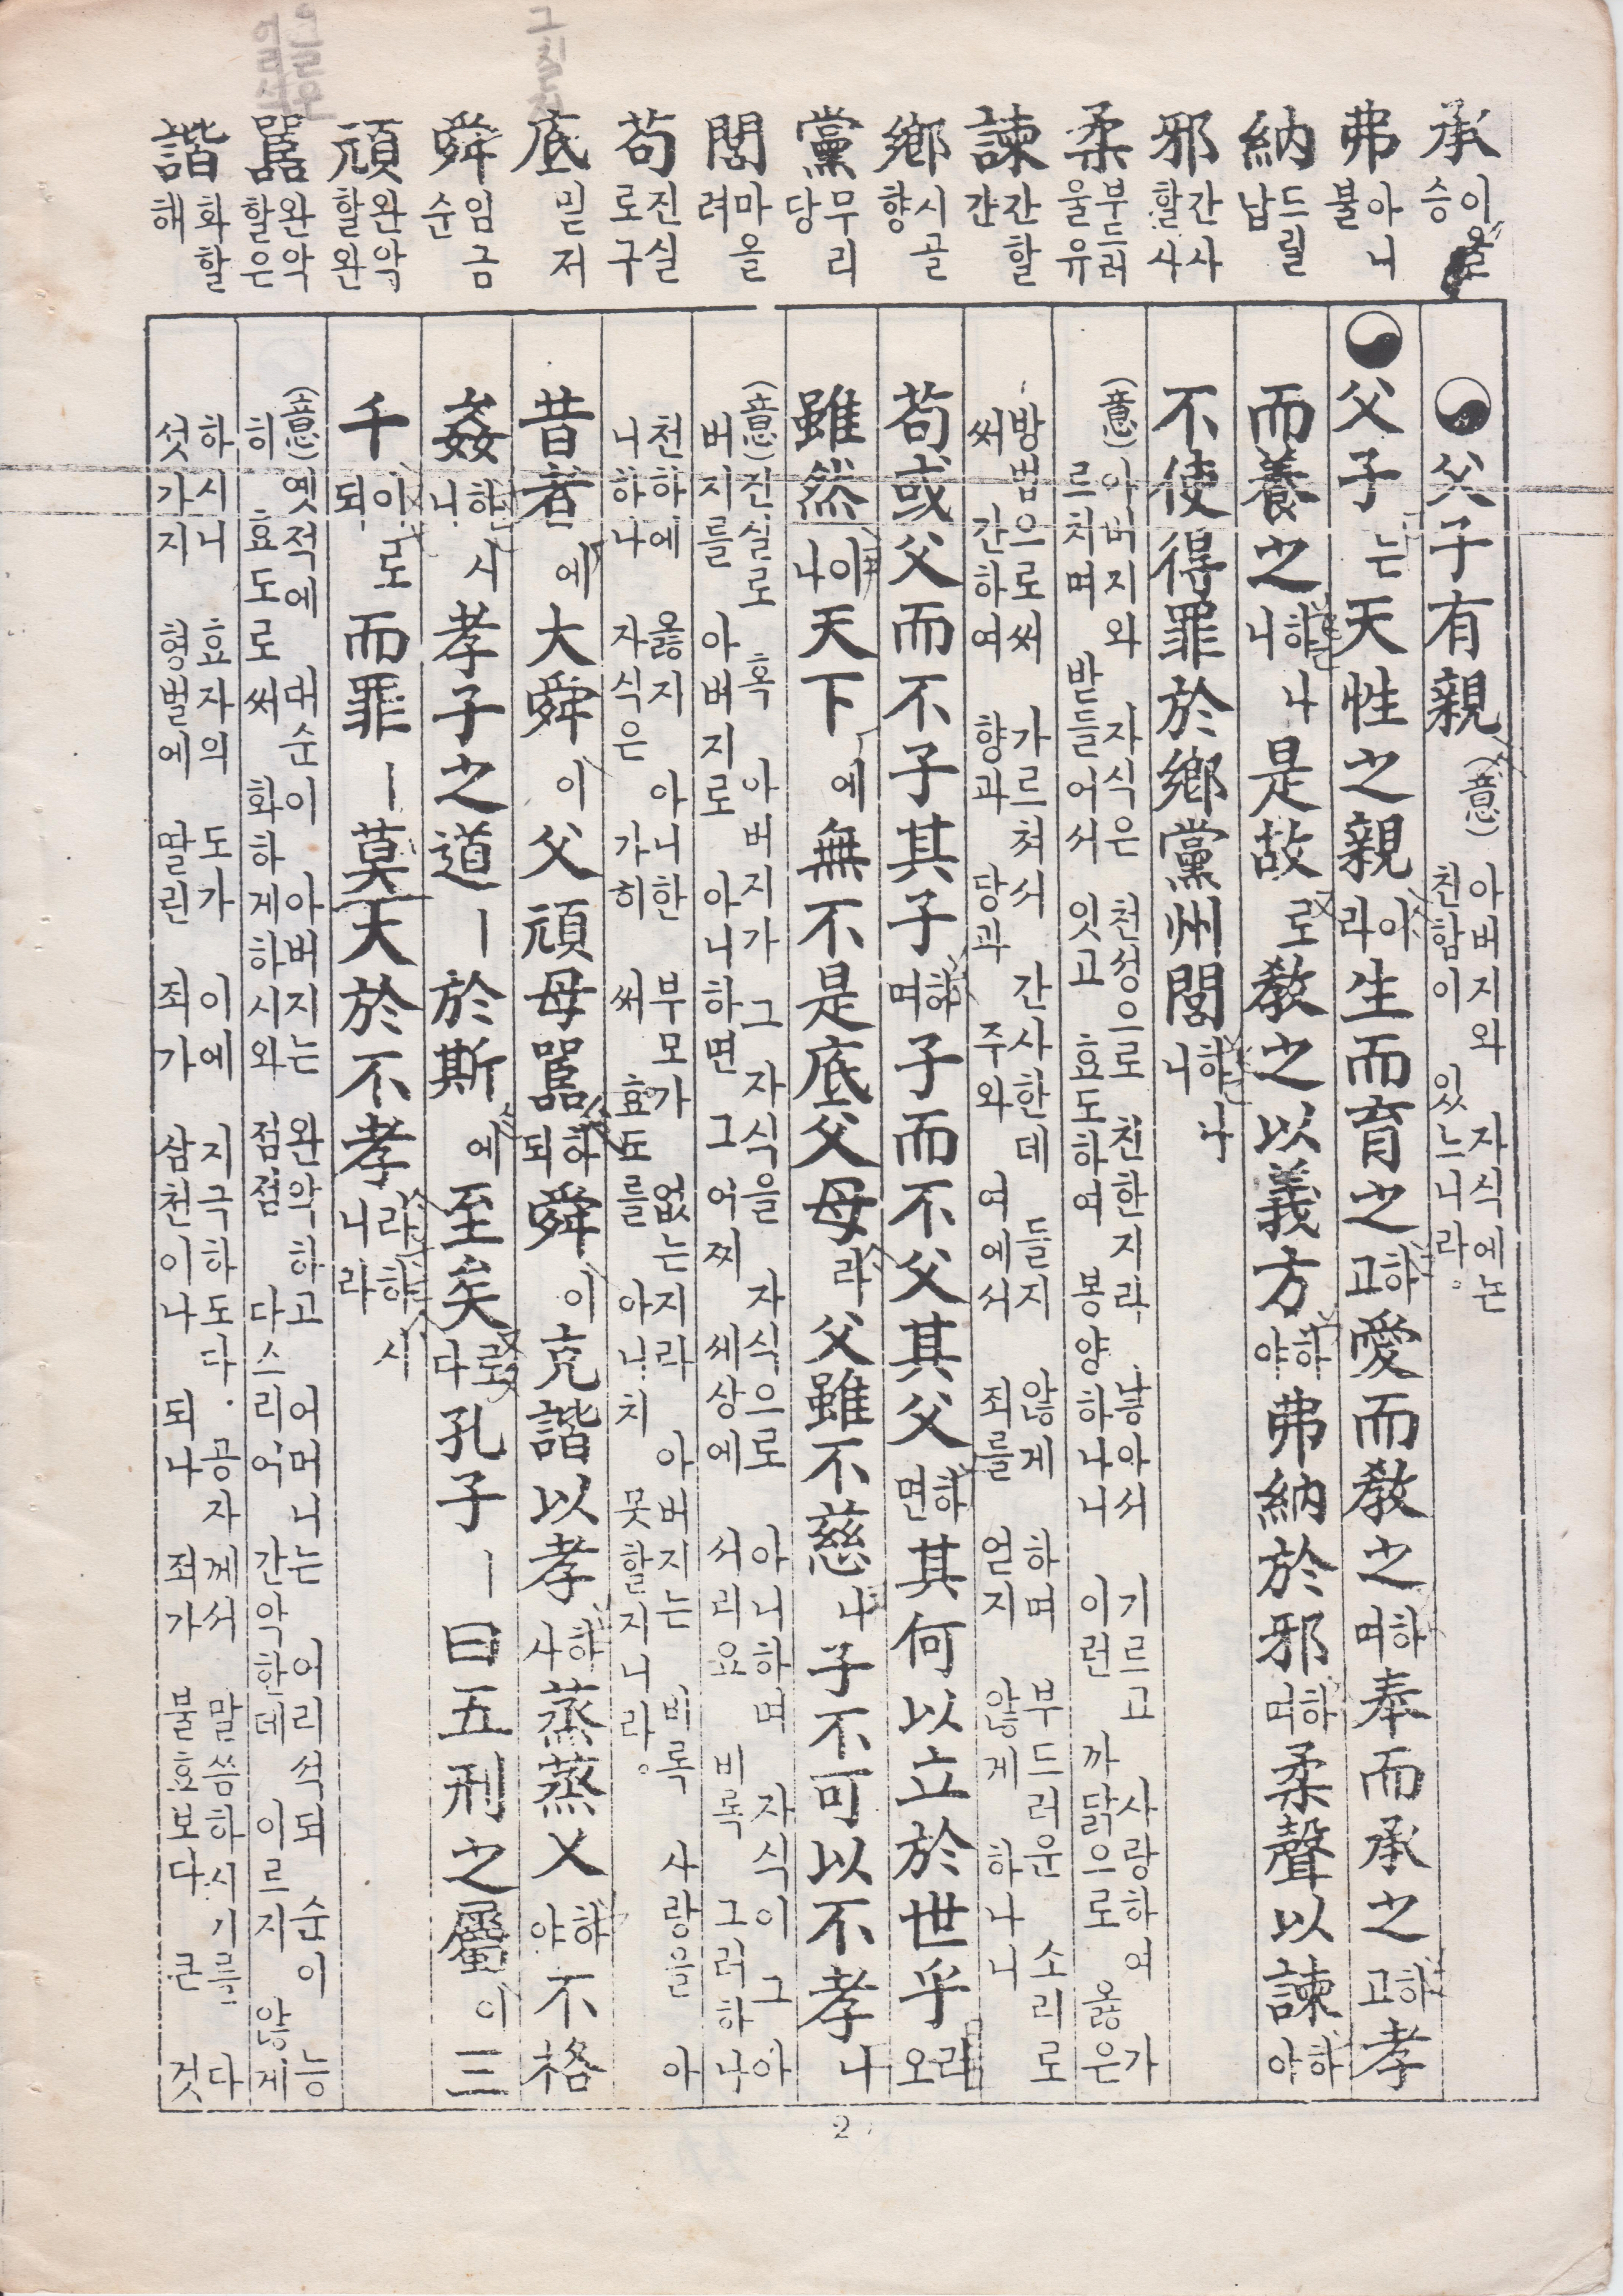 承 이을 승
弗 아니 불
納 드릴 납
邪 간사할 사
柔 부드러울 유
諫 간할 간
鄕 시골 향
黨 무리 당
閭 마을 려
苟 진실로 구
底 밑 저
舜 임금 순
頑 완악할 완
嚚 완악할 은
諧 화할 해
父子有親 (意) 아버지와 자식에는
친함이 있느니라.
父子는 天性之親이라 生而育之하고 愛而敎之하며 奉而承之하고 孝
而養之하나니 是故로 敎之以義方하야 弗納於邪하며 柔聲以諫하야
不使得罪於鄕黨州閭하나니
(意) 아버지와 자식은 천성으로 친한지라 낳아서 기르고 사랑하여 가
르치며 받들어서 잇고 효도하여 봉양하나니 이런 까닭으로 옳은
방법으로써 가르쳐서 간사한데 들지 않게 하며 부드러운 소리로
써 간하여 향과 당과 주와 여에서 죄를 얻지 않게 하나니
苟或父而不子其子하며 子而不父其父하면 其何以立於世乎리오
雖然이나 天下에 無不是底父母라 父雖不慈나 子不可以不孝니
(意) 진실로 혹 아버지가 그 자식을 자식으로 아니하며 자식이 그 아
버지를 아버지로 아니하면 그 어찌 세상에 서리요 비록 그러하나
천하에 옳지 아니한 부모가 없는지라 아버지는 비록 사랑을 아
니하나 자식은 가히 써 효도를 아니치 못할지니라.
昔者에 大舜이 父頑母嚚하되 舜이 克諧以孝하사 蒸蒸乂하야 不格
姦하시니 孝子之道ㅣ 於斯에 至矣로다 孔子ㅣ 曰五刑之屬이 三
千이로되 而罪ㅣ 莫大於不孝라하시니라
(意) 옛적에 대순이 아버지는 완악하고 어머니는 어리석되 순이 능
히 효도로써 화하게하시와 점점 다스리어 간악한데 이르지 않게
하시니 효자의 도가 이에 지극하도다. 공자께서 말씀하시기를 다
섯가지 형벌에 딸린 죄가 삼천이나 되나 죄가 불효보다 큰 것
2